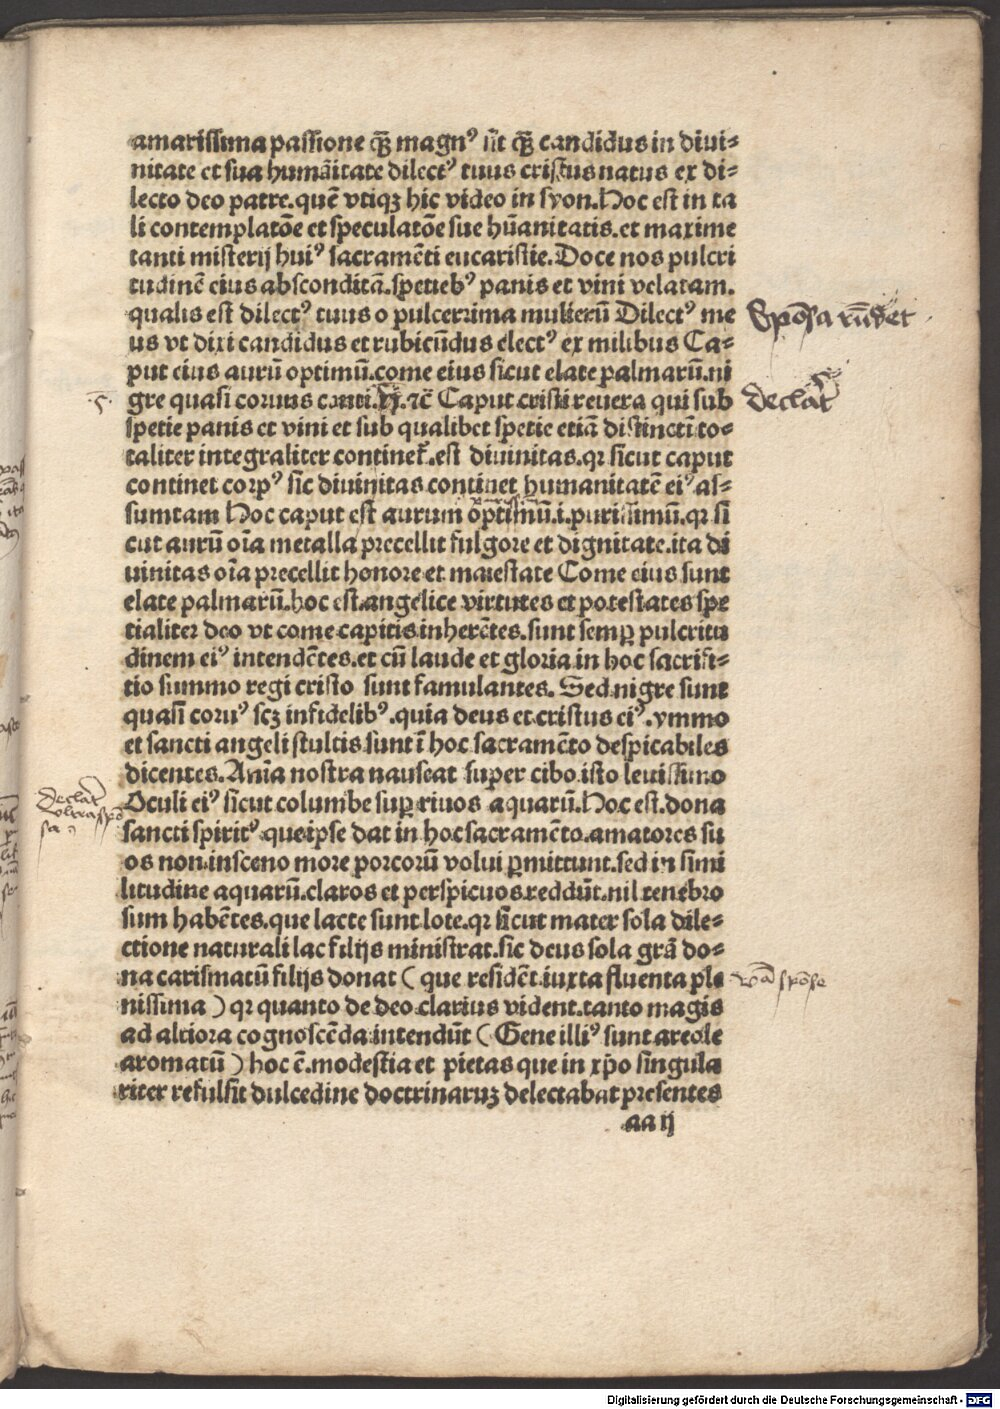 amarissima passione qȝ̄ magnꝰ ut̄ qȝ̄ candidus in diui⸗
nitate et sua humāitate dilectꝰ tuus cristus natus ex di⸗
lecto deo patre.quē vtiqȝ hic video in syon.Hoc est in ta
li contemplatōe et speculatōe sue hūanitatis.et maxime
tanti misterij huiꝰ sacramēti eucaristie.Doce nos pulcri
tudinē eius absconditā.spetiebꝰ panis et vini velatam.
qualis est dilectꝰ tuus o pulcerrima mulierū Dilectꝰ me
us vt dixi candidus et rubicūdus electꝰ ex milibus Ca⸗
put eius aurū optimū.come eius sicut elate palmarū.ni
gre quasi coruus canti. ⁊c̄ Caput cristi reuera qui sub
spetie panis et vini et sub qualibet spetie etiā distincti to⸗
taliter integraliter continet᷒.est diuinitas.qꝛ sicut caput
continet corpꝰ sic diuinitas continet humanitatē eiꝰ as⸗
sumtam Hoc caput est aurum optimū.i.purissimū.qꝛ si
cut aurū oīa metalla precellit fulgore et dignitate.ita di
uinitas oīa precellit honore et maiestate Come eius sunt
elate palmarū.hoc est.angelice virtutes et potestates spe
tialiter deo vt come capitis inherētes.sunt semꝑ pulcritu
dinem eiꝰ intendētes.et cū laude et gloria in hoc sacrifi⸗
tio summo regi cristo sunt famulantes. Sed nigre sunt
quasi coruꝰ scȝ infidelibꝰ.quia deus et cristus eiꝰ.ymmo
et sancti angeli stultis sunt ī hoc sacramēto despicabiles
dicentes.Anīa nostra nauseat super cibo isto leuissimo
Oculi eiꝰ sicut columbe suꝑ riuos aquarū.Hoc est.dona
sancti spiritꝰ.que ipse dat in hoc sacramēto.amatores su
os non in sceno more porcorū volui ꝑmittunt.sed in simi
litudine aquarū.claros et perspicuos reddūt.nil tenebro
sum habētes.que lacte sunt lote.qꝛ sicut mater sola dile⸗
ctione naturali lac filijs ministrat.sic deus sola grā do⸗
na carismatū filijs donat ( que residēt iuxta fluenta ple
nissima ) qꝛ quanto de deo clarius vident.tanto magis
ad altiora cognoscēda intendūt ( Gene illiꝰ sunt areole
aromatū ) hoc ē.modestia et pietas que in xp̄o singula
riter refulsit dulcedine doctrinaruȝ delectabat presentes
aa ij
Spōsa rūdet
declāt
declāt
Digitalisierung gefördert durch die Deutsche Forschungsgemeinschaft - DFG